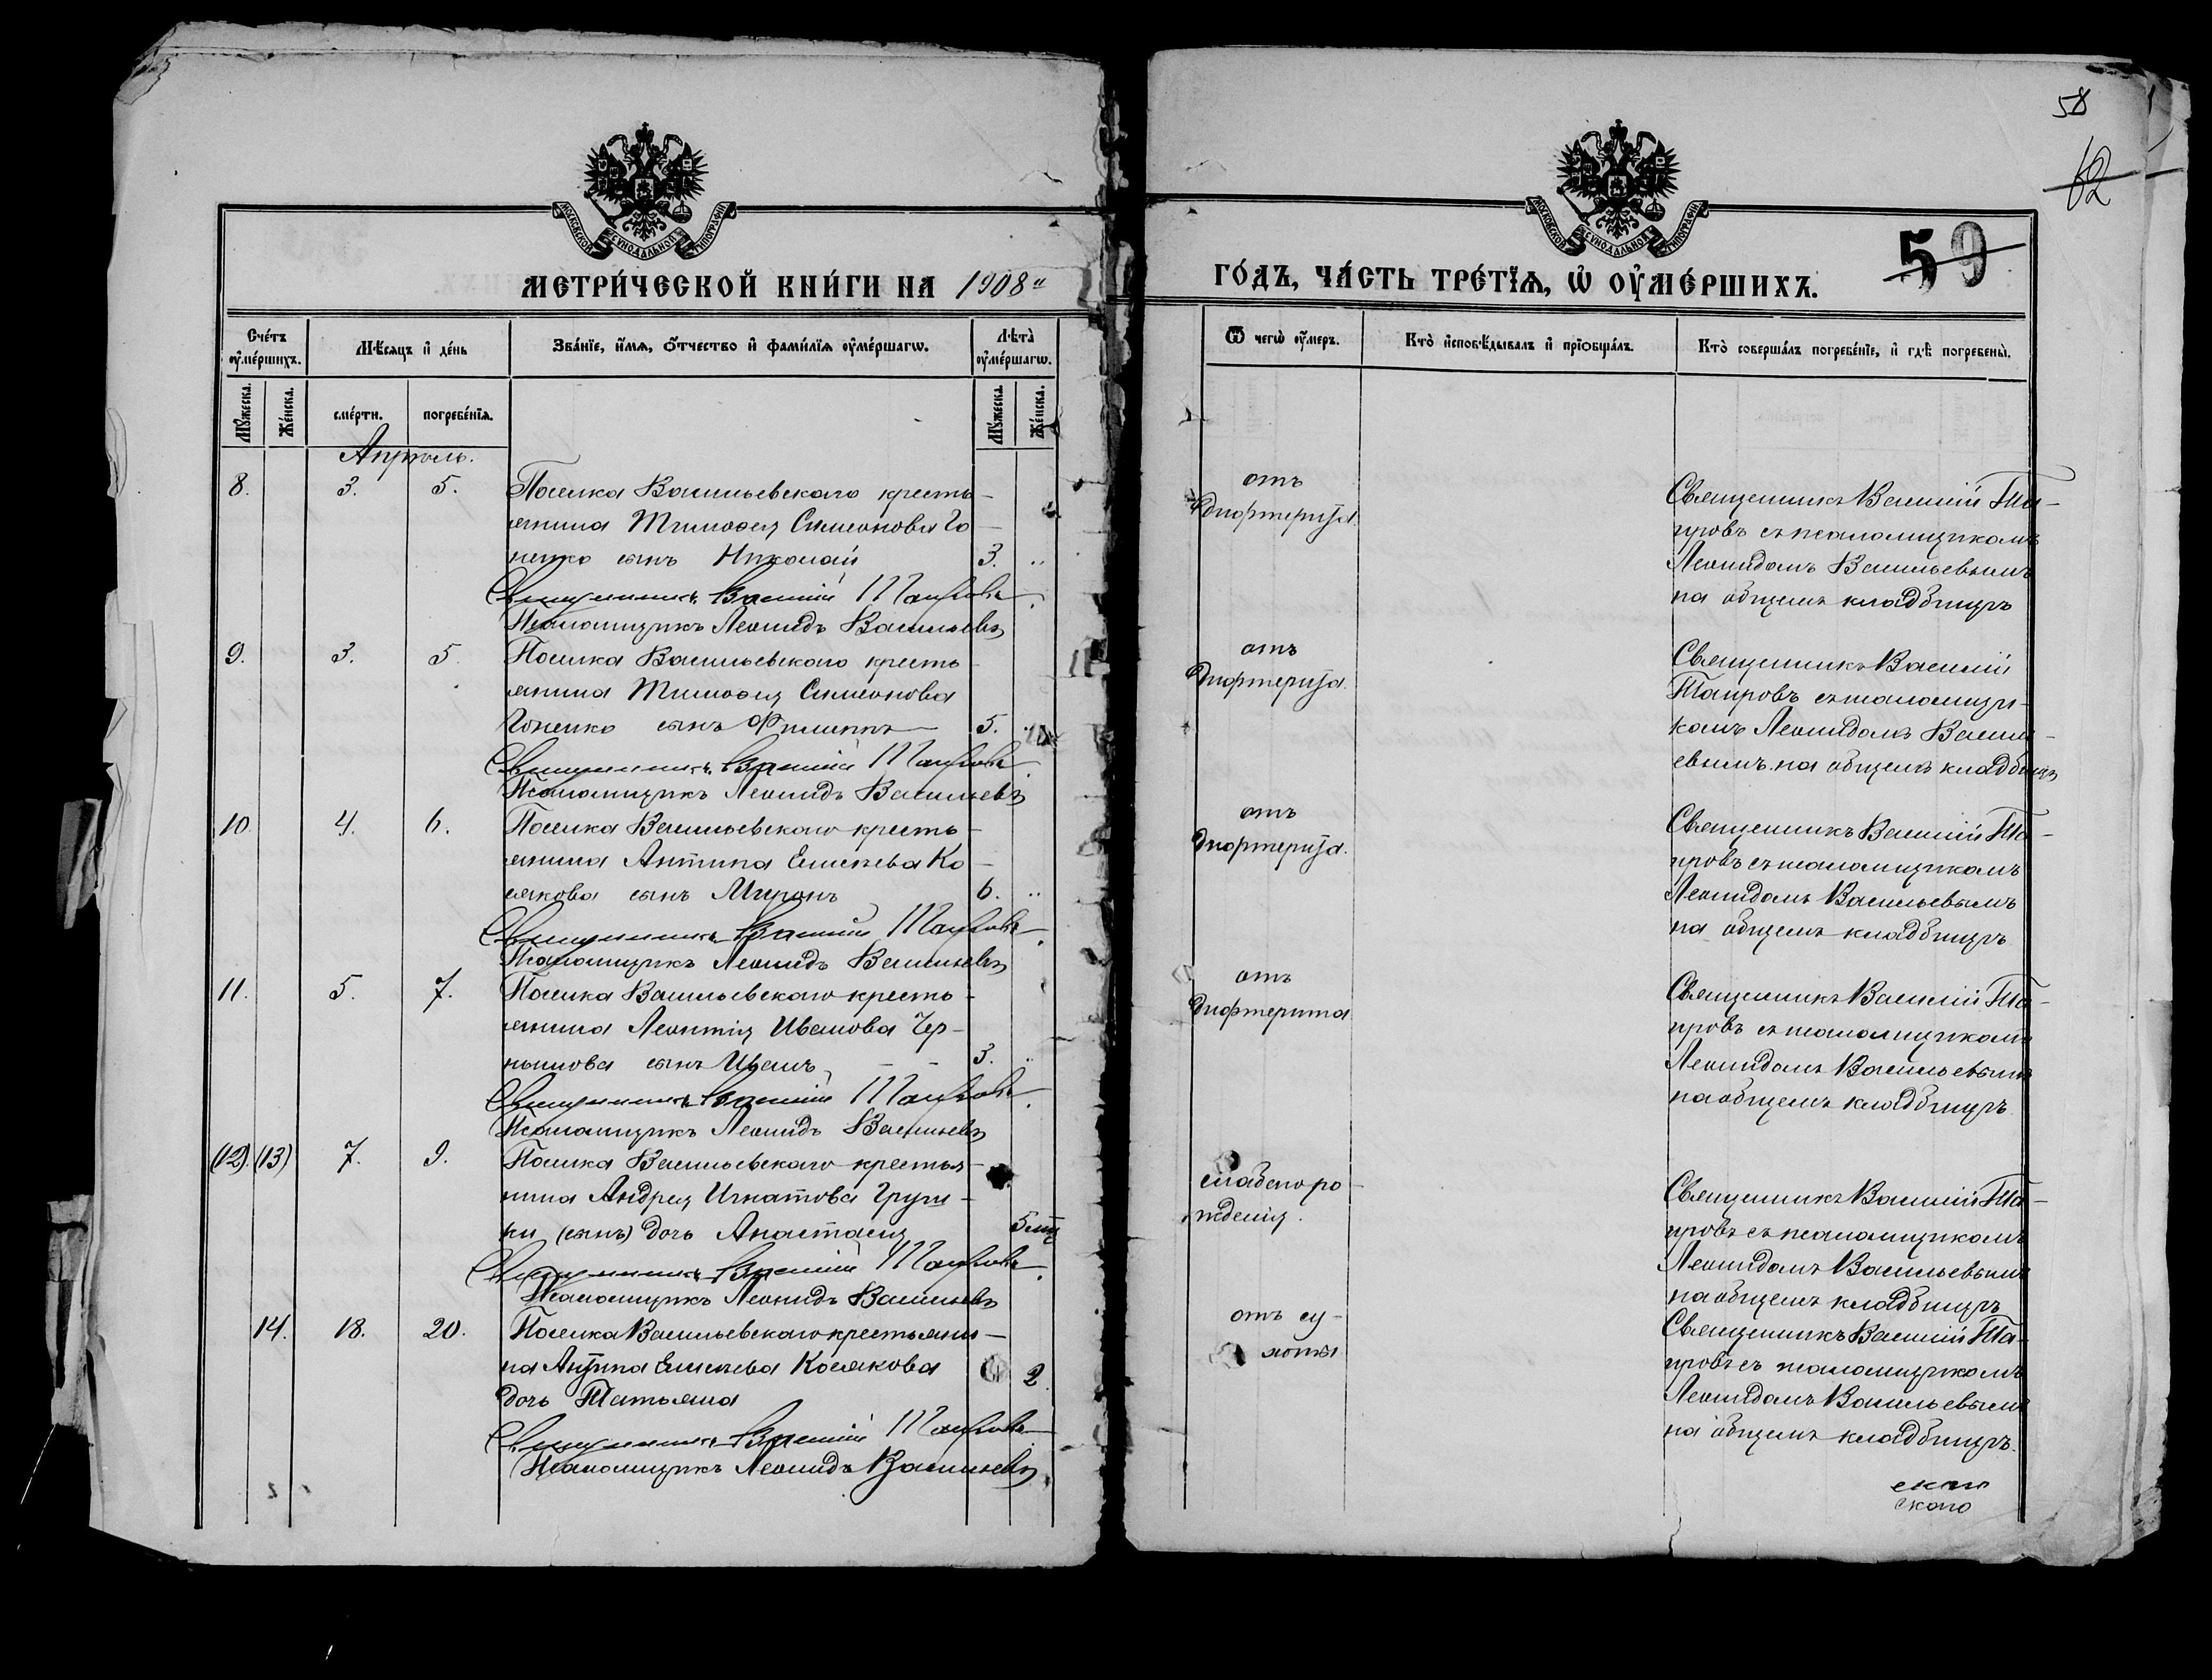 58
62
59
МОСКОВСКОЙ СѴНОДАЛЬНОЙ ТИПОГРАФІИ
МОСКОВСКОЙ СѴНОДАЛЬНОЙ ТИПОГРАФІИ
МЕТРИ́ЧЕСКОЙ КНИ́ГИ НА 1908"
ГО́ДЪ, ЧА́СТЬ ТРЕ́ТЇѦ, Ѡ҆ ОУ҆МЕ́РШИХЪ.
Сче́тъ оу҆ме́ршихъ.
Мꙋ́жеска.
Же́нска.
Мѣ́сѧцъ и҆ де́нь
сме́рти.
погребе́нїѧ.
Зва́нїе, и҆́мѧ, ѻ҆́тчество и҆ фами́лїѧ оу҆ме́ршагѡ.
Лѣта̀ оу҆ме́ршагѡ.
Мꙋ́жеска.
Же́нска.
Ѿ чегѡ̀ оу҆́меръ.
Кто̀ и҆сповѣ́дывалъ и҆ прїѻбща́лъ.
Кто̀ соверша́лъ погребе́нїе, и҆ гдѣ̀ погребены̀.
Апрѣль.
8. 3. 5. Поселка Васильевскаго кресть-
янина Тимоѳея Симеонова Го-
ненко сынъ Николай 3. "
Священникъ Василій Таировъ.
Псаломщикъ Леонидъ Васильевъ
отъ
дифтерита.
Священникъ Василій Таи-
ировъ съ псаломщикомъ
Леонидомъ Васильевымъ
на общемъ кладбищѣ
9. 3. 5. Поселка Васильевскаго кресть-
янина Тимоѳея Симеонова
Гоненко сынъ Филиппъ 5. "
Священникъ Василій Таировъ.
Псаломщикъ Леонидъ Васильевъ
отъ
дифтерита.
Священникъ Василій
Таировъ съ псаломщи-
комъ Леонидомъ Василь-
евымъ на общемъ кладбищѣ
10. 4. 6. Поселка Васильевскаго кресть-
янина Антипа Елисеева Ко-
сякова сынъ Миронъ 6. "
Священникъ Василій Таировъ.
Псаломщикъ Леонидъ Васильевъ
отъ
дифтерита.
Священникъ Василій Та-
ировъ съ псаломщикомъ
Леонидомъ Васильевымъ
на общемъ кладбищѣ
11. 5. 7. Поселка Васильевскаго кресть-
янина Леонтія Иванова Чер-
нышова сынъ Иванъ 3. "
Священникъ Василій Таировъ.
Псаломщикъ Леонидъ Васильевъ
отъ
дифтерита
Священникъ Василій Та-
ировъ съ псаломщикомъ
Леонидомъ Васильевымъ
на общемъ кладбищѣ.
(12). (13) 7. 9. Поселка Васильевскаго крестья-
нина Андрея Игнатова
(сынъ) дочь Анастасія
Священникъ Василій Таировъ.
Псаломщикъ Леонидъ Васильевъ
слабаго ро-
жденія.
Священникъ Василій Та-
ировъ съ псаломщикомъ
Леонидомъ Васильевымъ
на общемъ кладбищѣ
14. 18. 20. Поселка Васильевскаго крестьяни-
на Антипа Елисеева Косякова 2.
дочь Татьяна
Священникъ Василій Таировъ
Псаломщикъ Леонидъ Васильевъ
отъ су-
хоты
Священникъ Василій Та-
ировъ съ псаломщикомъ
Леонидомъ Васильевымъ
на общемъ кладбищѣ.
скаго